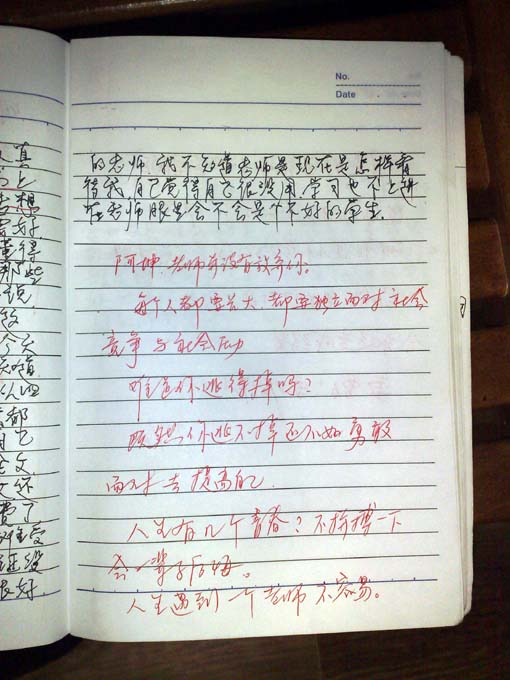 No.
Date
的老师,我不知道老师是现在是怎样看
待我,自己觉得自己很没用,学习也不上进
在老师眼是会不会是个不好的学生.
阿坤,老师并没有放弃你。
每个人都要长大,都要独立面对社会
竞争与社会压力
难道你逃得掉吗?
既然你逃不掉还不如勇敢
面对去提高自己.
人生有几个青春?不拼搏一下
会一辈子后悔。
人生遇到一个老师不容易。
真
上
想
好
得
那些
说
今天
知道
四
都
自己
文
还
费了
难受
没
很好